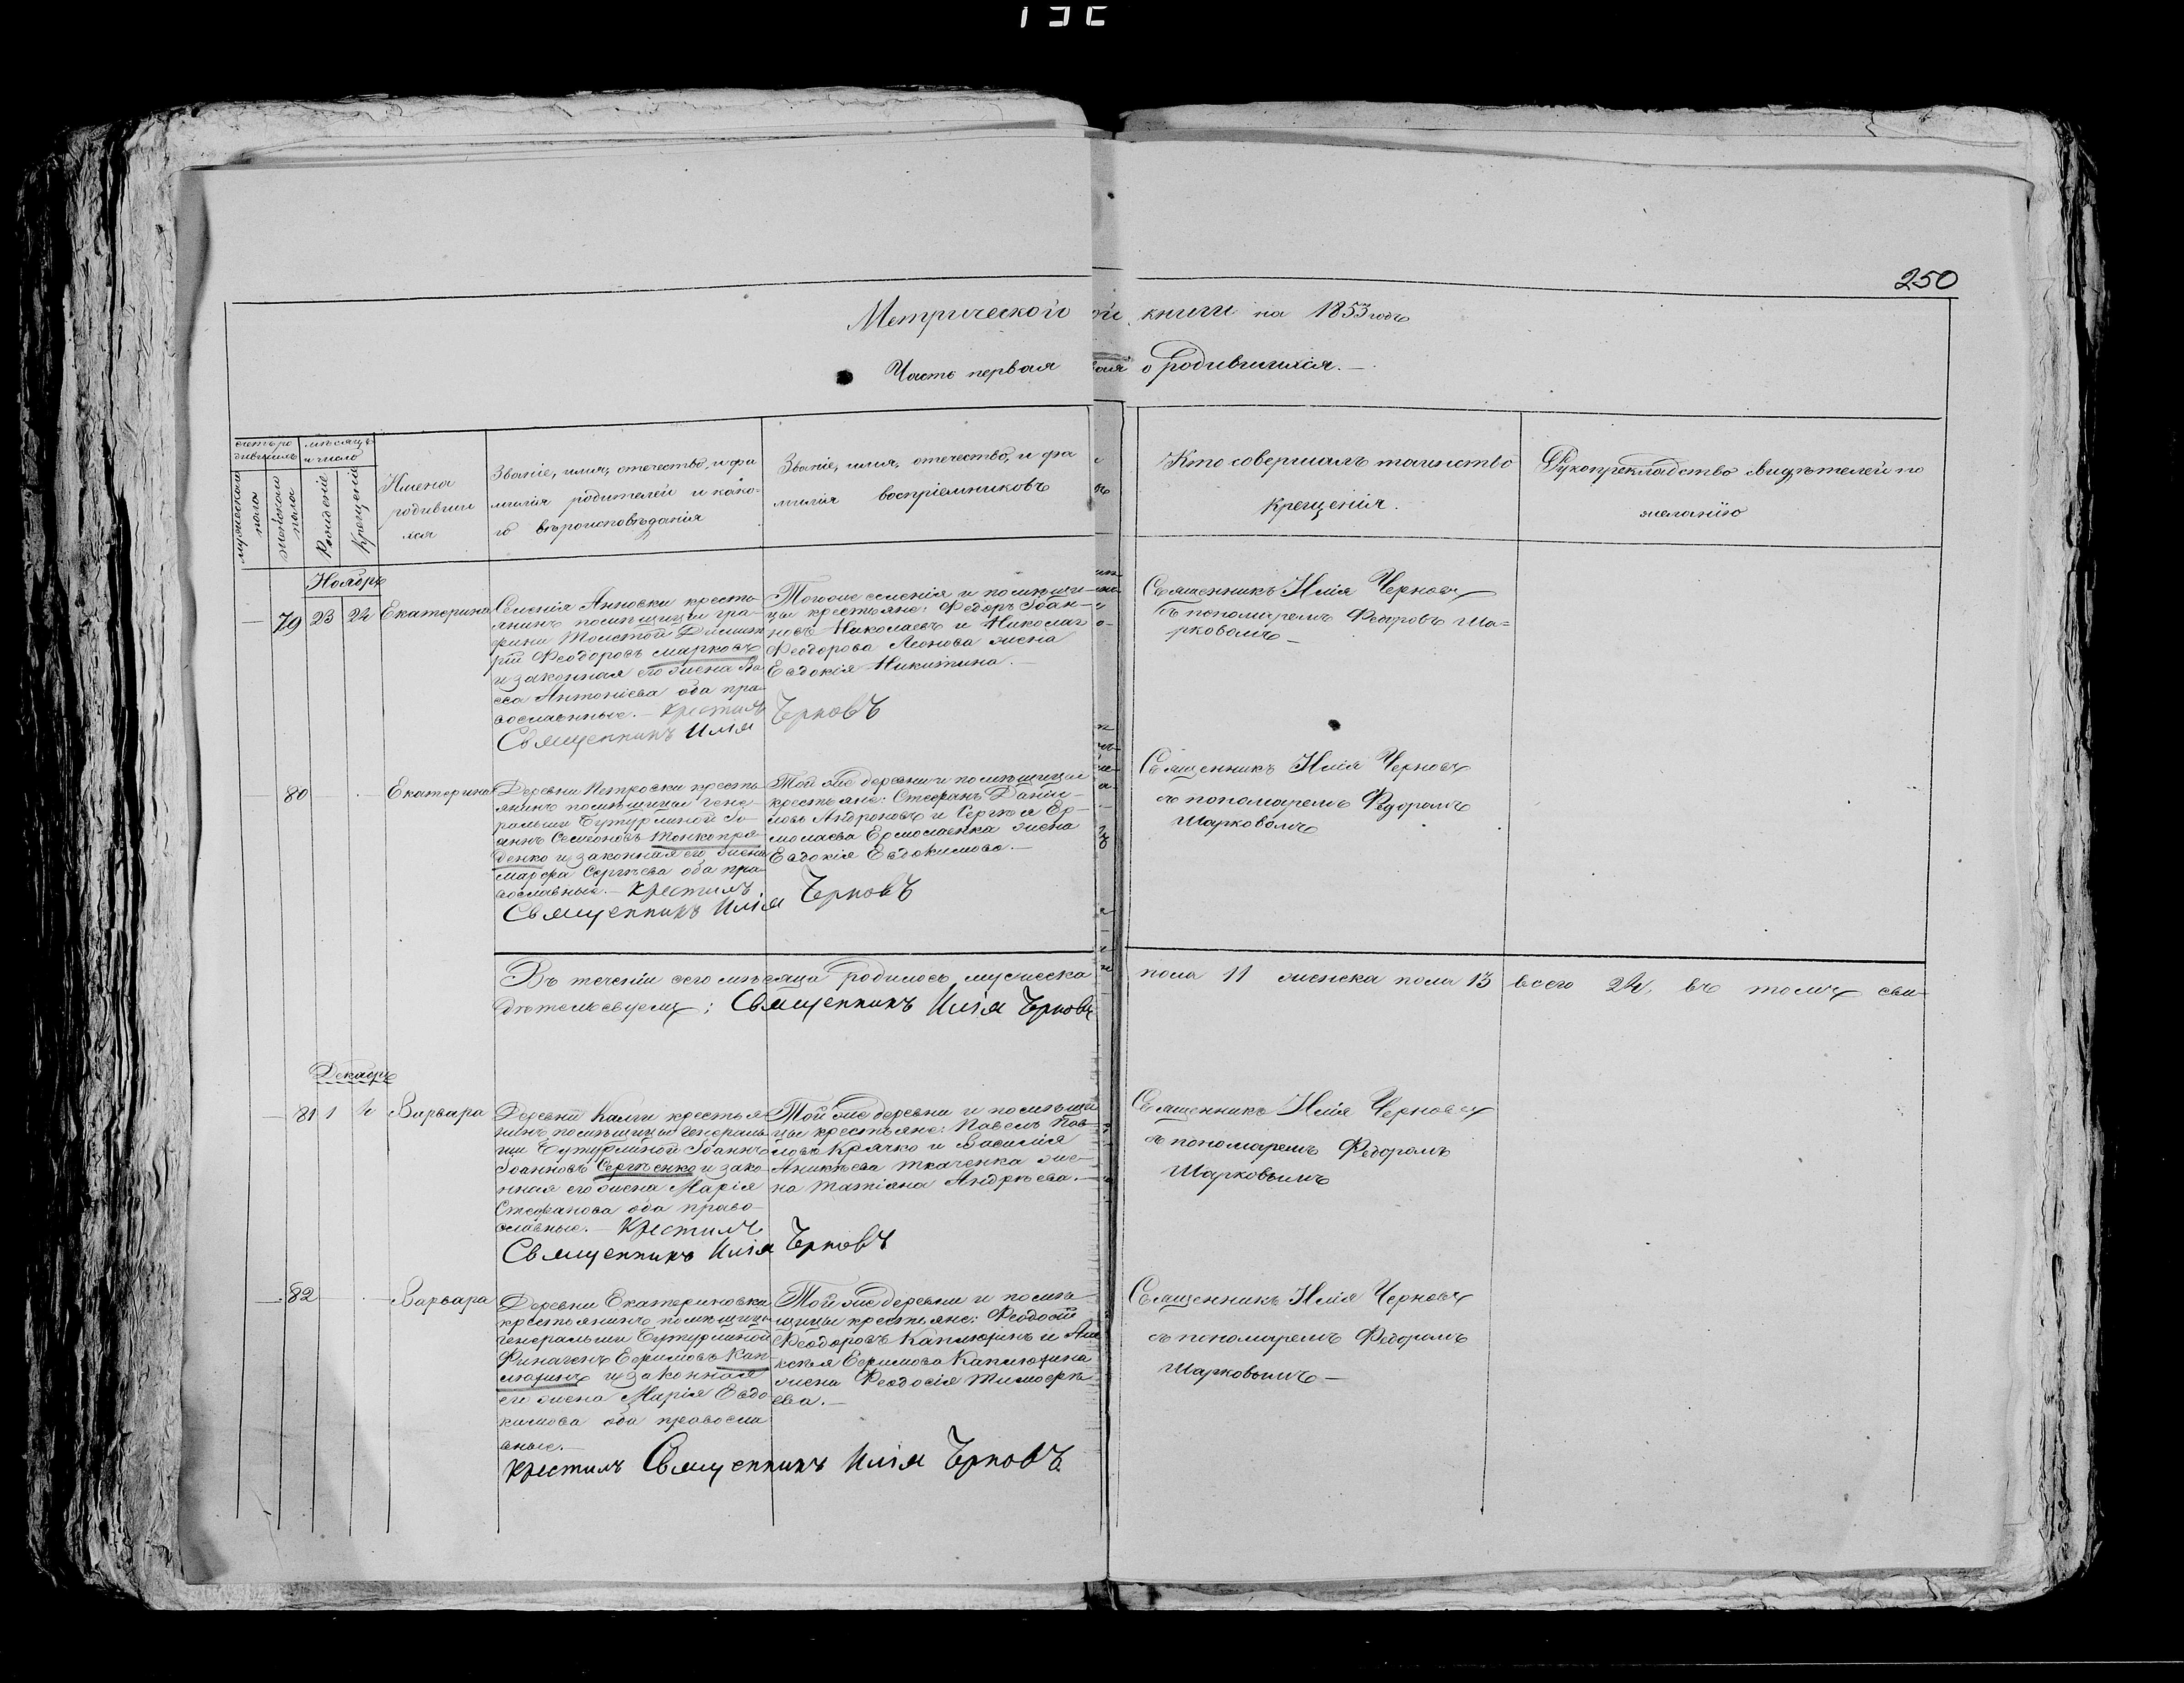 250
Метрической книги на 1853 годъ
Часть первая о родившихся.
счетъ ро
дившихъ
мѣсяцъ
и число
мужескаго
пола
женскаго
пола
Рожденіе
Крещеніе
Имена
родивши
хся
Званіе, имя, отечество, и фа
милія родителей и како-
го вѣроисповѣданія
Званіе, имя, отечество, и фа
милія воспріемниковъ
Кто совершалъ таинство
крещенія.
Рукоприкладство свидѣтелей по
желанію
Ноябрь
79 23 24 Екатерина
Селенія Анновки кресть-
янинъ помѣщицы гра-
фини Толстой Димит
рій Феодоровъ Марковъ
и законная его жена Ва
сса Антоніева оба пра-
вославные. - Крестилъ
Священникъ Илія Черновъ
Тогоже селенія и помѣщи
цы крестьяне: Федоръ Іоан-
новъ Николаевъ и Николая
Феодорова Леонова жена
Евдокія Никитина. -
Священникъ Илія Черновъ
съ пономаремъ Федоровъ Ша=
рковомъ -
80 Екатерина
Деревни Петровки кресть
янинъ помѣщицы гене-
ральши Бутурлиной Іо-
аннъ Семеновъ Тонкопря-
денко и законная его жена
Марфа Сергѣева оба пра-
вославные. - Крестилъ
Священникъ Илія Черновъ
Той же деревни и помѣщицы
крестьяне: Стефанъ Дани-
ловъ Андроновъ и Сергѣя Ер-
молаева Ермолаенка жена
Евдокія Евдокимова. -
Священникъ Илія Черновъ
съ пономаремъ Федоромъ
Шарковомъ
Въ теченіи сего мѣсяца родилось мужеска пола 11 женска пола 13 всего 24, въ томъ сви-
дѣтельствуемъ: Священникъ Илія Черновъ
Декабрь
81 1 4 Варвара
Деревни Калги крестья
нинъ помѣщицы генераль
ши Бутурлиной Іоаннъ
Іоанновъ Сергѣенко и зако-
нная его жена Марія
Стефанова оба право-
славные. - Крестилъ
Священникъ Илія Черновъ
Той же деревни и помѣщи
цы крестьяне: Павелъ Пав
ловъ Крячко и Василія
Аникѣева Ткаченка же-
на Татіана Андрѣева. -
Священникъ Илія Черновъ
съ пономаремъ Федоромъ
Шарковымъ
82 Варвара
Деревни Екатериновки
крестьянинъ помѣщицы
генеральши Бутурлиной
Ефимовъ Кап-
люхинъ и законная
его жена Марія Евдо
кимова оба правосла
вные. -
Крестилъ Священникъ Илія Черновъ
Той же деревни и помѣ-
щицы крестьяне: Феодосій
Феодоровъ Каплюхинъ и Але
ксѣя Ефимова Каплюхина
жена Феодосія Тимофѣ
ева. -
Священникъ Илія Черновъ
съ пономаремъ Федоромъ
Шарковымъ -